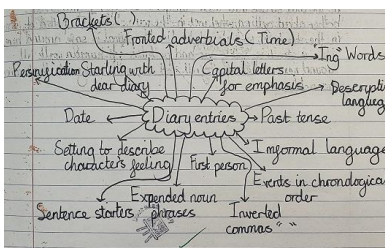 Brackets ( )
Fronted adverbials (Time)
"Ing" Words
Personification
Starting with dear diary
Capital letters for emphasis
Descriptive languag
Date
Diary entries
Past tense
Setting to describe characters feeling
First person
Informal language
Events in chronologica order
Sentence starters
Expended noun phrases
Inverted commas " "